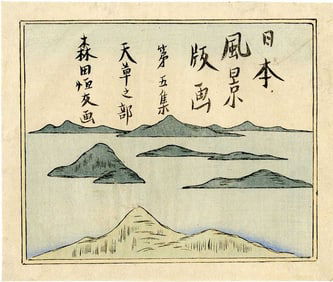 日本
風景
版画
第五集
天草之部
森田恒友画